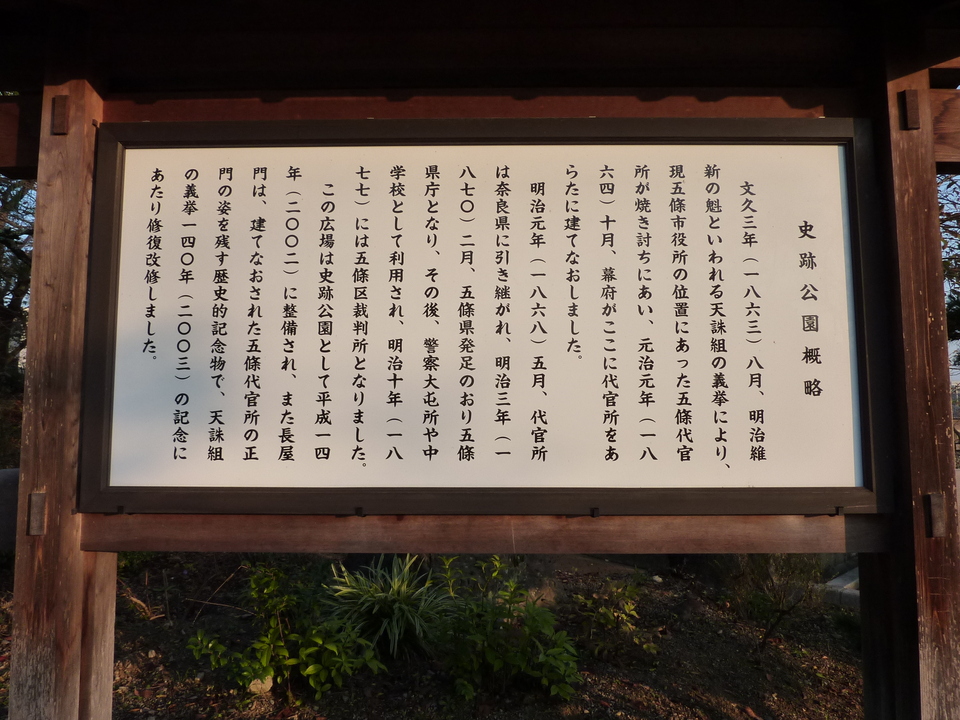 史跡公園概略
文久三年（一八六三）八月、明治維
新の魁といわれる天誅組の義挙により、
現五條市役所の位置にあった五條代官
所が焼き討ちにあい、元治元年（一八
六四）十月、幕府がここに代官所をあ
らたに建てなおしました。
明治元年（一八六八）五月、代官所
は奈良県に引き継がれ、明治三年（一
八七〇）二月、五條県発足のおり五條
県庁となり、その後、警察大屯所や中
学校として利用され、明治十年（一八
七七）には五條区裁判所となりました。
この広場は史跡公園として平成一四
年（二〇〇二）に整備され、また長屋
門は、建てなおされた五條代官所の正
門の姿を残す歴史的記念物で、天誅組
の義挙一四〇年（二〇〇三）の記念に
あたり修復改修しました。